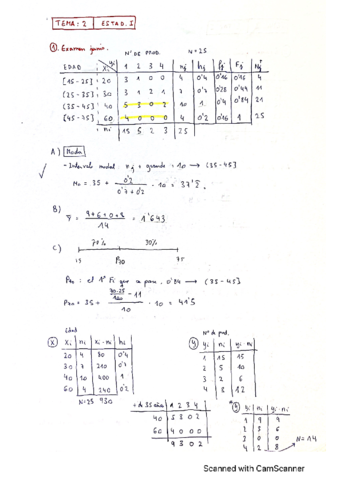 TEMA: 2 ESTAD. I
① Examen junio.
Nº DE PROD. N=25
EDAD xi yi 1 2 3 4 nj hj fj Fj Nj
[15-25) = 20 3 1 0 0 4 0'4 0'16 0'16 4
[25-35) = 30 3 1 2 1 7 0'7 0'28 0'44 11
[35-45) = 40 5 3 0 2 10 1 0'4 0'84 21
[45-75) = 60 4 0 0 0 4 0'2 0'16 1 25
ni 15 5 2 3 25
A) Moda
- Intervalo modal: hj + grande = 10 → (35-45]
Mo = 35 + 0'2 / 0'7+0'2 · 10 = 37'2
B)
ȳ = 9+6+0+8 / 14 = 1'643
C)
70% 30%
15 P70 75
P70 : el 1º Fi que a pasa. 0'84 → (35-45]
P70 = 35 + 70·25/100 - 11 / 10 · 10 = 41'5
Edad
x xi ni xi·ni hi
20 4 80 0'4
30 7 210 0'7
40 10 400 1
60 4 240 0'2
N=25 930
Nº de prod.
y yi ni yi·ni
1 15 15
2 5 10
3 2 6
4 3 12
+ de 35 años 1 2 3 4
40 5 3 0 2
60 4 0 0 0
9 3 0 2
yi ni yi·ni
1 9 9
2 3 6
3 0 0
4 2 8
N=14
Scanned with CamScanner